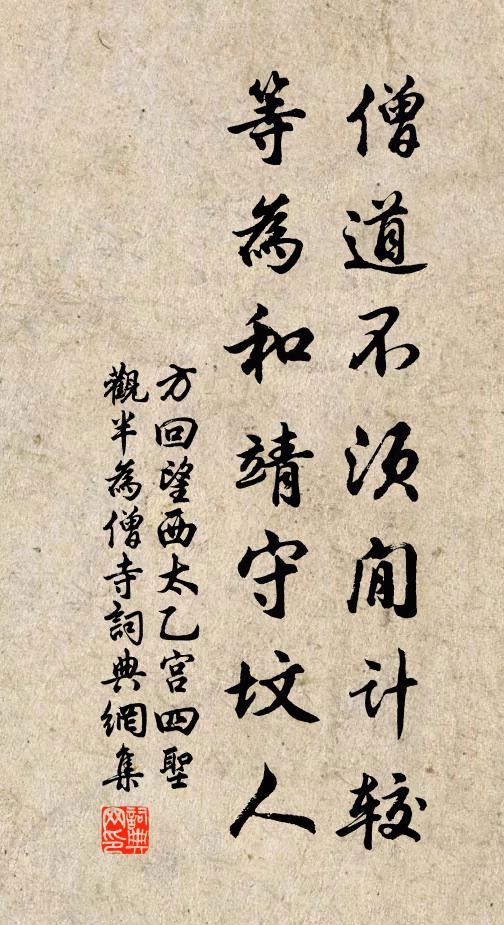 僧道不须閒计较
等為和靖守坟人
方回望西太乙宫四聖
觀半為僧寺詞典網集
詞典网印